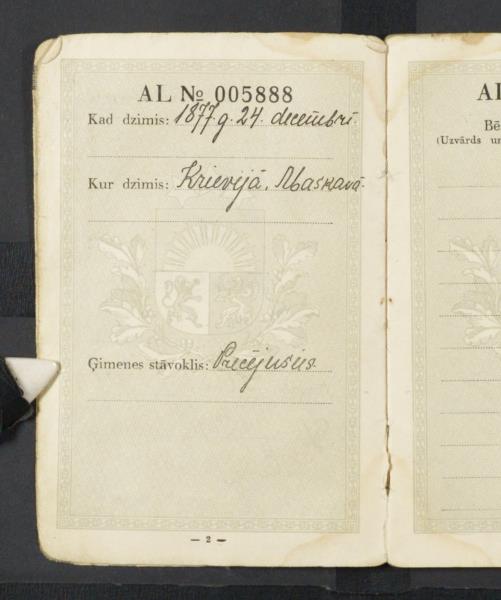 AL № 005888
Kad dzimis: 1877.g. 24. decembrī.
Kur dzimis: Krievijā, Maskavā.
Ģimenes stāvoklis: Precējusies.
— 2 —
AL
Bē
(Uzvārds un